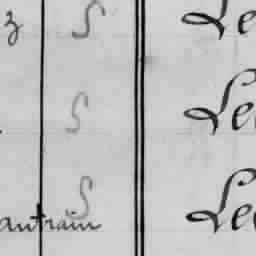 z S Le
S Le
antrain S Le